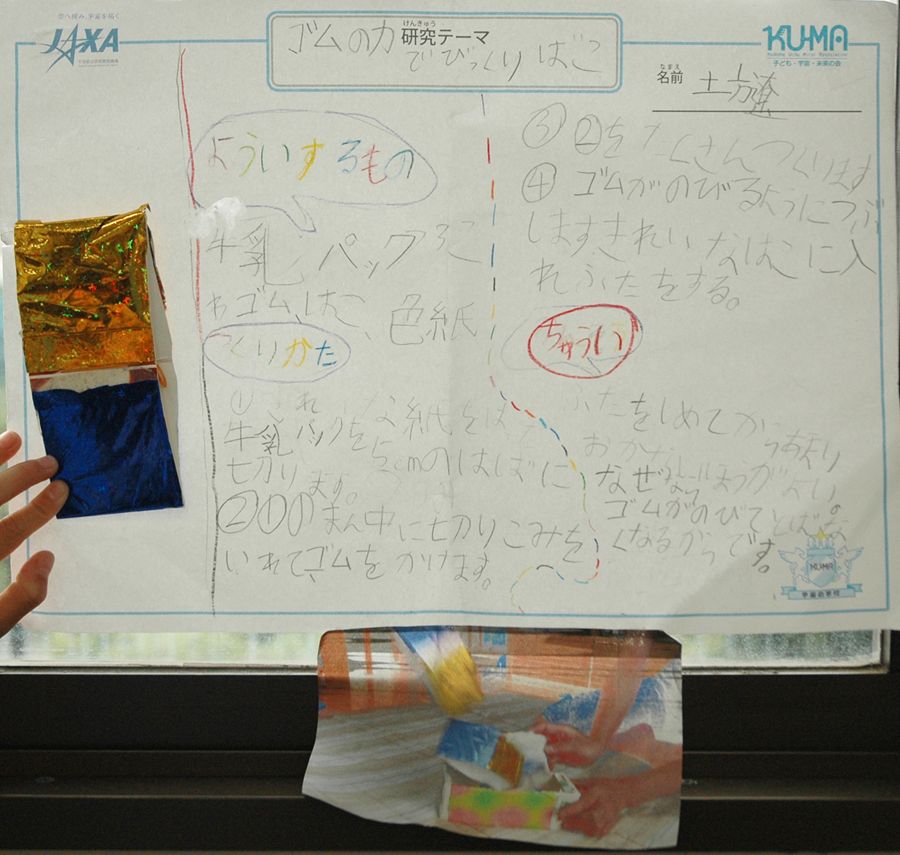 空へ挑み、宇宙を拓く
JAXA
けんきゅう
ゴムの力 研究テーマ
でびっくりばこ
KUMA
子ども・宇宙・未来の会
なまえ
名前 土方遼
よういするもの
牛乳パック3こ
わゴムはこ 色紙
くりかた
①
牛乳パックを
七切り 5cmのはばに
ます。
②①のまん中に切りこみを
いれてゴムをかけます。
③②をたくさんつくります
④ゴムがのびるようにつぶ
しますきれいなはこに入
れふたをする。
ちゅうい
ふたをしめてから
おかない
なぜなら ほうがよい。
ゴムがのびて
くなるからです。
KUMA
宇宙の学校